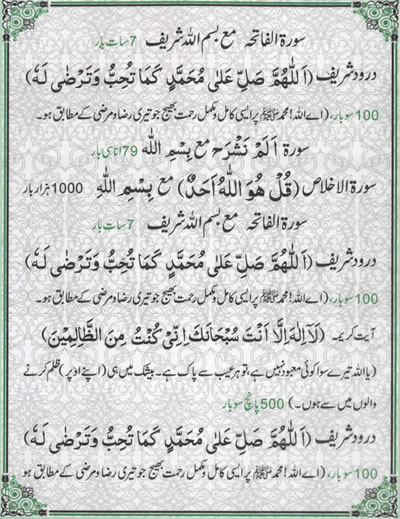 سورۃ الفاتحہ مع بسم اللہ شریف 7 سات بار
درود شریف (اَللّٰهُمَّ صَلِّ عَلٰی مُحَمَّدٍ کَمَا تُحِبُّ وَتَرْضٰی لَهٗ)
100 سو بار، (اے اللہ! محمد ﷺ پر ایسی کامل و مکمل رحمت بھیج جو تیری رضا و مرضی کے مطابق ہو۔
سورۃ اَلَمْ نَشْرَحْ مع بِسْمِ اللّٰه 79 اناسی بار
سورۃ الاخلاص (قُلْ هُوَ اللّٰهُ اَحَدٌ) مع بِسْمِ اللّٰهِ 1000 ہزار بار
سورۃ الفاتحہ مع بسم اللہ شریف 7 سات بار
درود شریف (اَللّٰهُمَّ صَلِّ عَلٰی مُحَمَّدٍ کَمَا تُحِبُّ وَتَرْضٰی لَهٗ)
100 سو بار، (اے اللہ! محمد ﷺ پر ایسی کامل و مکمل رحمت بھیج جو تیری رضا و مرضی کے مطابق ہو۔
آیت کریمہ (لَآ اِلٰهَ اِلَّا اَنْتَ سُبْحَانَكَ اِنِّیْ کُنْتُ مِنَ الظَّالِمِیْنَ)
(یا اللہ تیرے سوا کوئی معبود نہیں ہے، تو ہر عیب سے پاک ہے۔ بیشک میں ہی (اپنے اوپر) ظلم کرنے
والوں میں سے ہوں۔) 500 پانچ سو بار
درود شریف (اَللّٰهُمَّ صَلِّ عَلٰی مُحَمَّدٍ کَمَا تُحِبُّ وَتَرْضٰی لَهٗ)
100 سو بار، (اے اللہ! محمد ﷺ پر ایسی کامل و مکمل رحمت بھیج جو تیری رضا و مرضی کے مطابق ہو